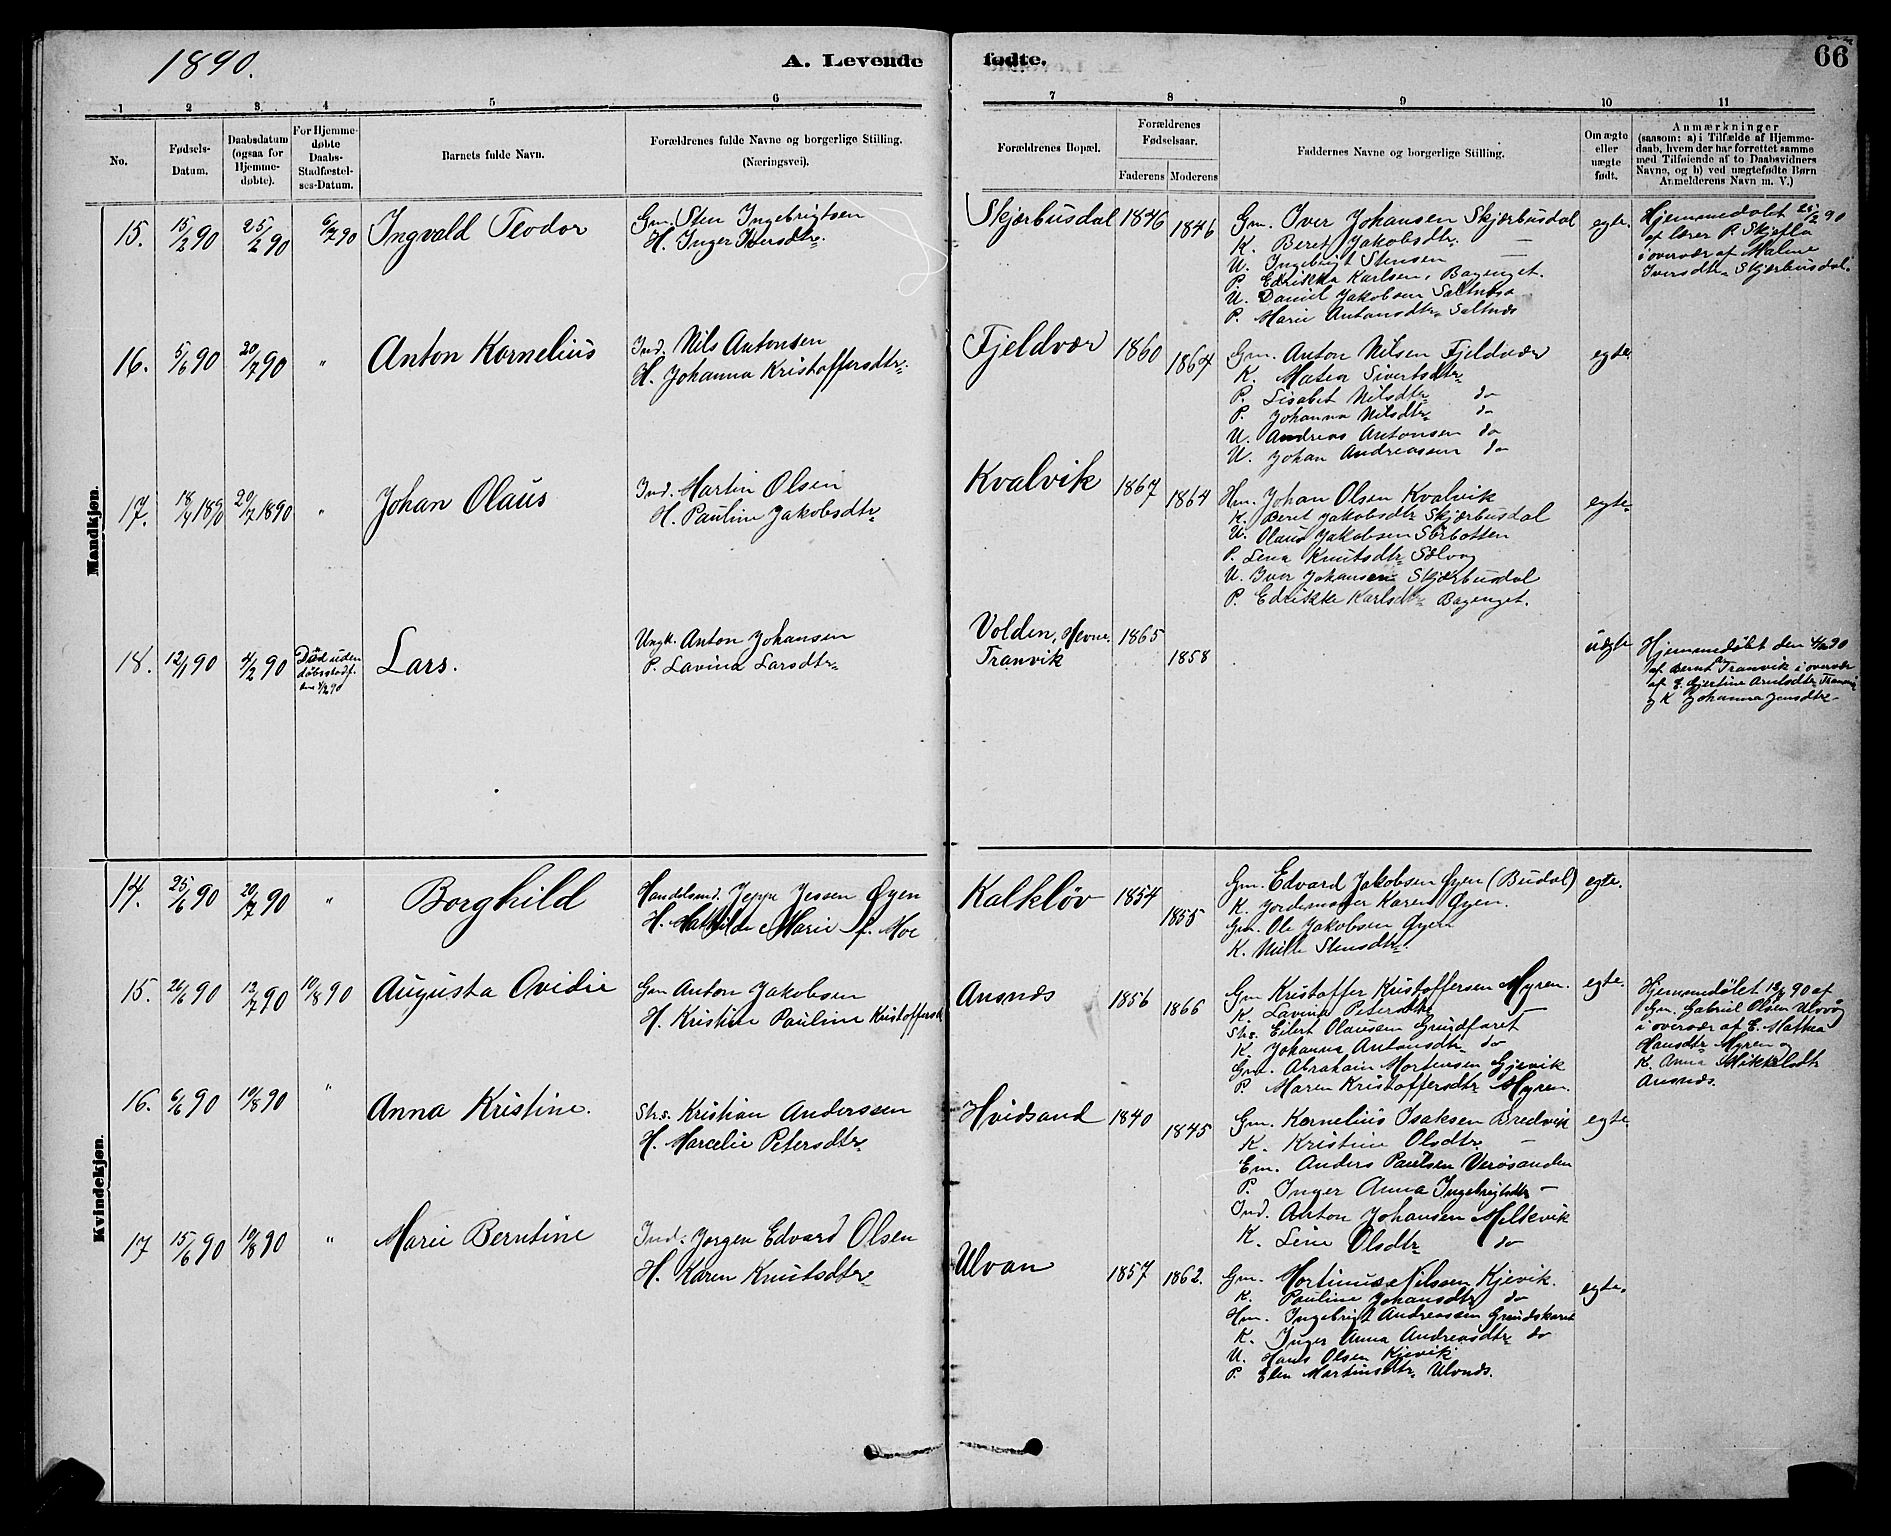 1890.
A. Levende
fødte.
66
1 2 3 4 5 6 7 8 9 10 11
No.
Fødsels-
Datum.
Daabsdatum
(ogsaa for
Hjemme-
døbte).
For Hjemme-
døbte
Daabs-
Stadfæstel-
ses-Datum.
Barnets fulde Navn.
Forældrenes fulde Navne og borgerlige Stilling.
(Næringsvei).
Forældrenes Bopæl.
Forældrenes
Fødselsaar.
Faderens Moderens
Faddernes Navne og borgerlige Stilling.
Om ægte
eller
uægte
født.
Anmærkninger
(saasom: a) i Tilfælde af Hjemme-
daab, hvem der har forrettet samme
med Tilføiende af to Daabsvidners
Navne, og b) ved uægtefødte Børn
Anmelderens Navn m. V.)
Mandkjøn.
15. 15/2 90 25/2 90 6/7 90 Ingvald Teodor
Gm. Sten Ingebrigtsen
H. Inger Iversdtr.
Skjærbusdal 1846 1846
Gm. Iver Johansen Skjærbusdal
K. Beret Jakobsdtr. —
U. Ingebrigt Stensen —
P. Edrikka Karlsen, Bagenget.
U. Daniel Jakobsen Saltnes
P. Marie Antonsdtr. Saltnes
egte.
Hjemmedøbt 25/2 90
af lærer P. Skjeflo
i overvær af Maline
Iversdtr. Skjærbusdal.
16. 5/6 90 20/7 90 " Anton Kornelius
Ind. Nils Antonsen
H. Johanna Kristoffersdtr.
Fjeldvær 1860 1864
Gm. Anton Nilsen Fjeldvær
K. Matea Sivertsdtr
P. Lisabet Nilsdtr do
P. Johanna Nilsdtr do
U. Andreas Antonsen do
U. Johan Andreassen do
egte
17. 18/4 1890 20/7 1890 " Johan Olaus
Ind. Martin Olsen
H. Pauline Jakobsdtr
Kvalvik 1867 1864
Hm. Johan Olsen Kvalvik
K. Beret Jakobsdtr Skjærbusdal
U. Olaus Jakobsen Sørbotten
P. Lena Knutsdtr Selvåg
U. Iver Johansen Skjærbusdal
P. Edrikke Karlsdtr Bagenget.
egte
18. 12/1 90 4/2 90
Død uden
døbsstadf.
Lars.
Ungk. Anton Johansen
P. Lavina Larsdtr
Volden, Hevne.
Tranvik
1865 1858
uægte
Hjemmedøbt den 4/2 90
af Bernt Tranvik i overvær
af E. Gjertine Arntsdtr Tranvik
og K Johanna Jensdtr
Kvindekjøn.
14. 25/6 90 20/7 90 " Borghild
Handelsmd. Jeppe Jessen Øyen
H. Mathilde Marie f. Moe
Kalkløv 1854 1855
Gm. Edvard Jakobsen Øyen (Budal)
K. Jordemoder Karen Øyen.
Gm. Ole Jakobsen Øyen
K. Mille Stensdtr
egte.
15. 26/6 90 12/7 90 10/8 90 Augusta Ovidie
Gm Anton Jakobsen
H. Kristine Pauline Kristoffersd
Ansnes 1856 1866
Gm Kristoffer Kristoffersen Myren.
K. Lavina Petersdtr —
Sths. Eilert Olausen Grundfaret
K. Johanna Antonsdtr do
Gm. Abraham Mortensen Gjevik
P. Maren Kristoffersdtr Myren.
egte.
Hjemmedøbt 12/7 90 af
Gm. Gabriel Olsen Ulvøg
i overvær af E. Mathea
Hansdtr Myren og
K. Anna Mikkelsdtr
Ansnes.
16. 6/6 90 10/8 90 " Anna Kristine.
Sths. Kristian Anderssen
H. Marcelie Petersdtr
Hvidsand 1840 1845
Gm. Kornelius Isaksen Bredvik
K. Kristine Olsdtr —
Em. Anders Paulsen Verøsanden
P. Inger Anna Ingebrigtsdtr —
Ind. Anton Johansen Melkvik
K. Line Olsdtr do
egte
17 15/6 90 10/8 90 " Marie Berntine
Ind. Jørgen Edvard Olsen
H. Karen Knutsdtr
Ulvan 1857 1862.
Gm. Mortinus Nilsen Kjevik.
K. Pauline Johansdtr do
Hm. Ingebrigt Andreassen Grundskaret
K. Inger Anna Andreasdtr do
U. Hans Olsen Kjevik
P. Elen Martinsdtr Ulvnes.
egte.